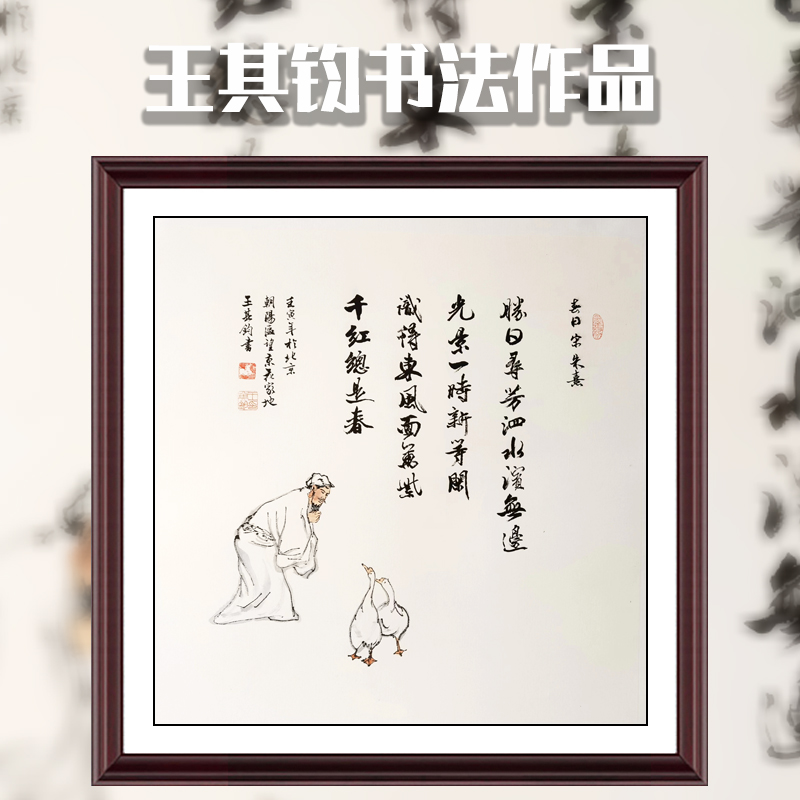 王其钧书法作品
春日 宋 朱熹
勝日尋芳泗水濱無邊
光景一時新等閑
識得東風面萬紫
千紅總是春
壬寅年於北京
朝陽區望京花家地
王其鈞書